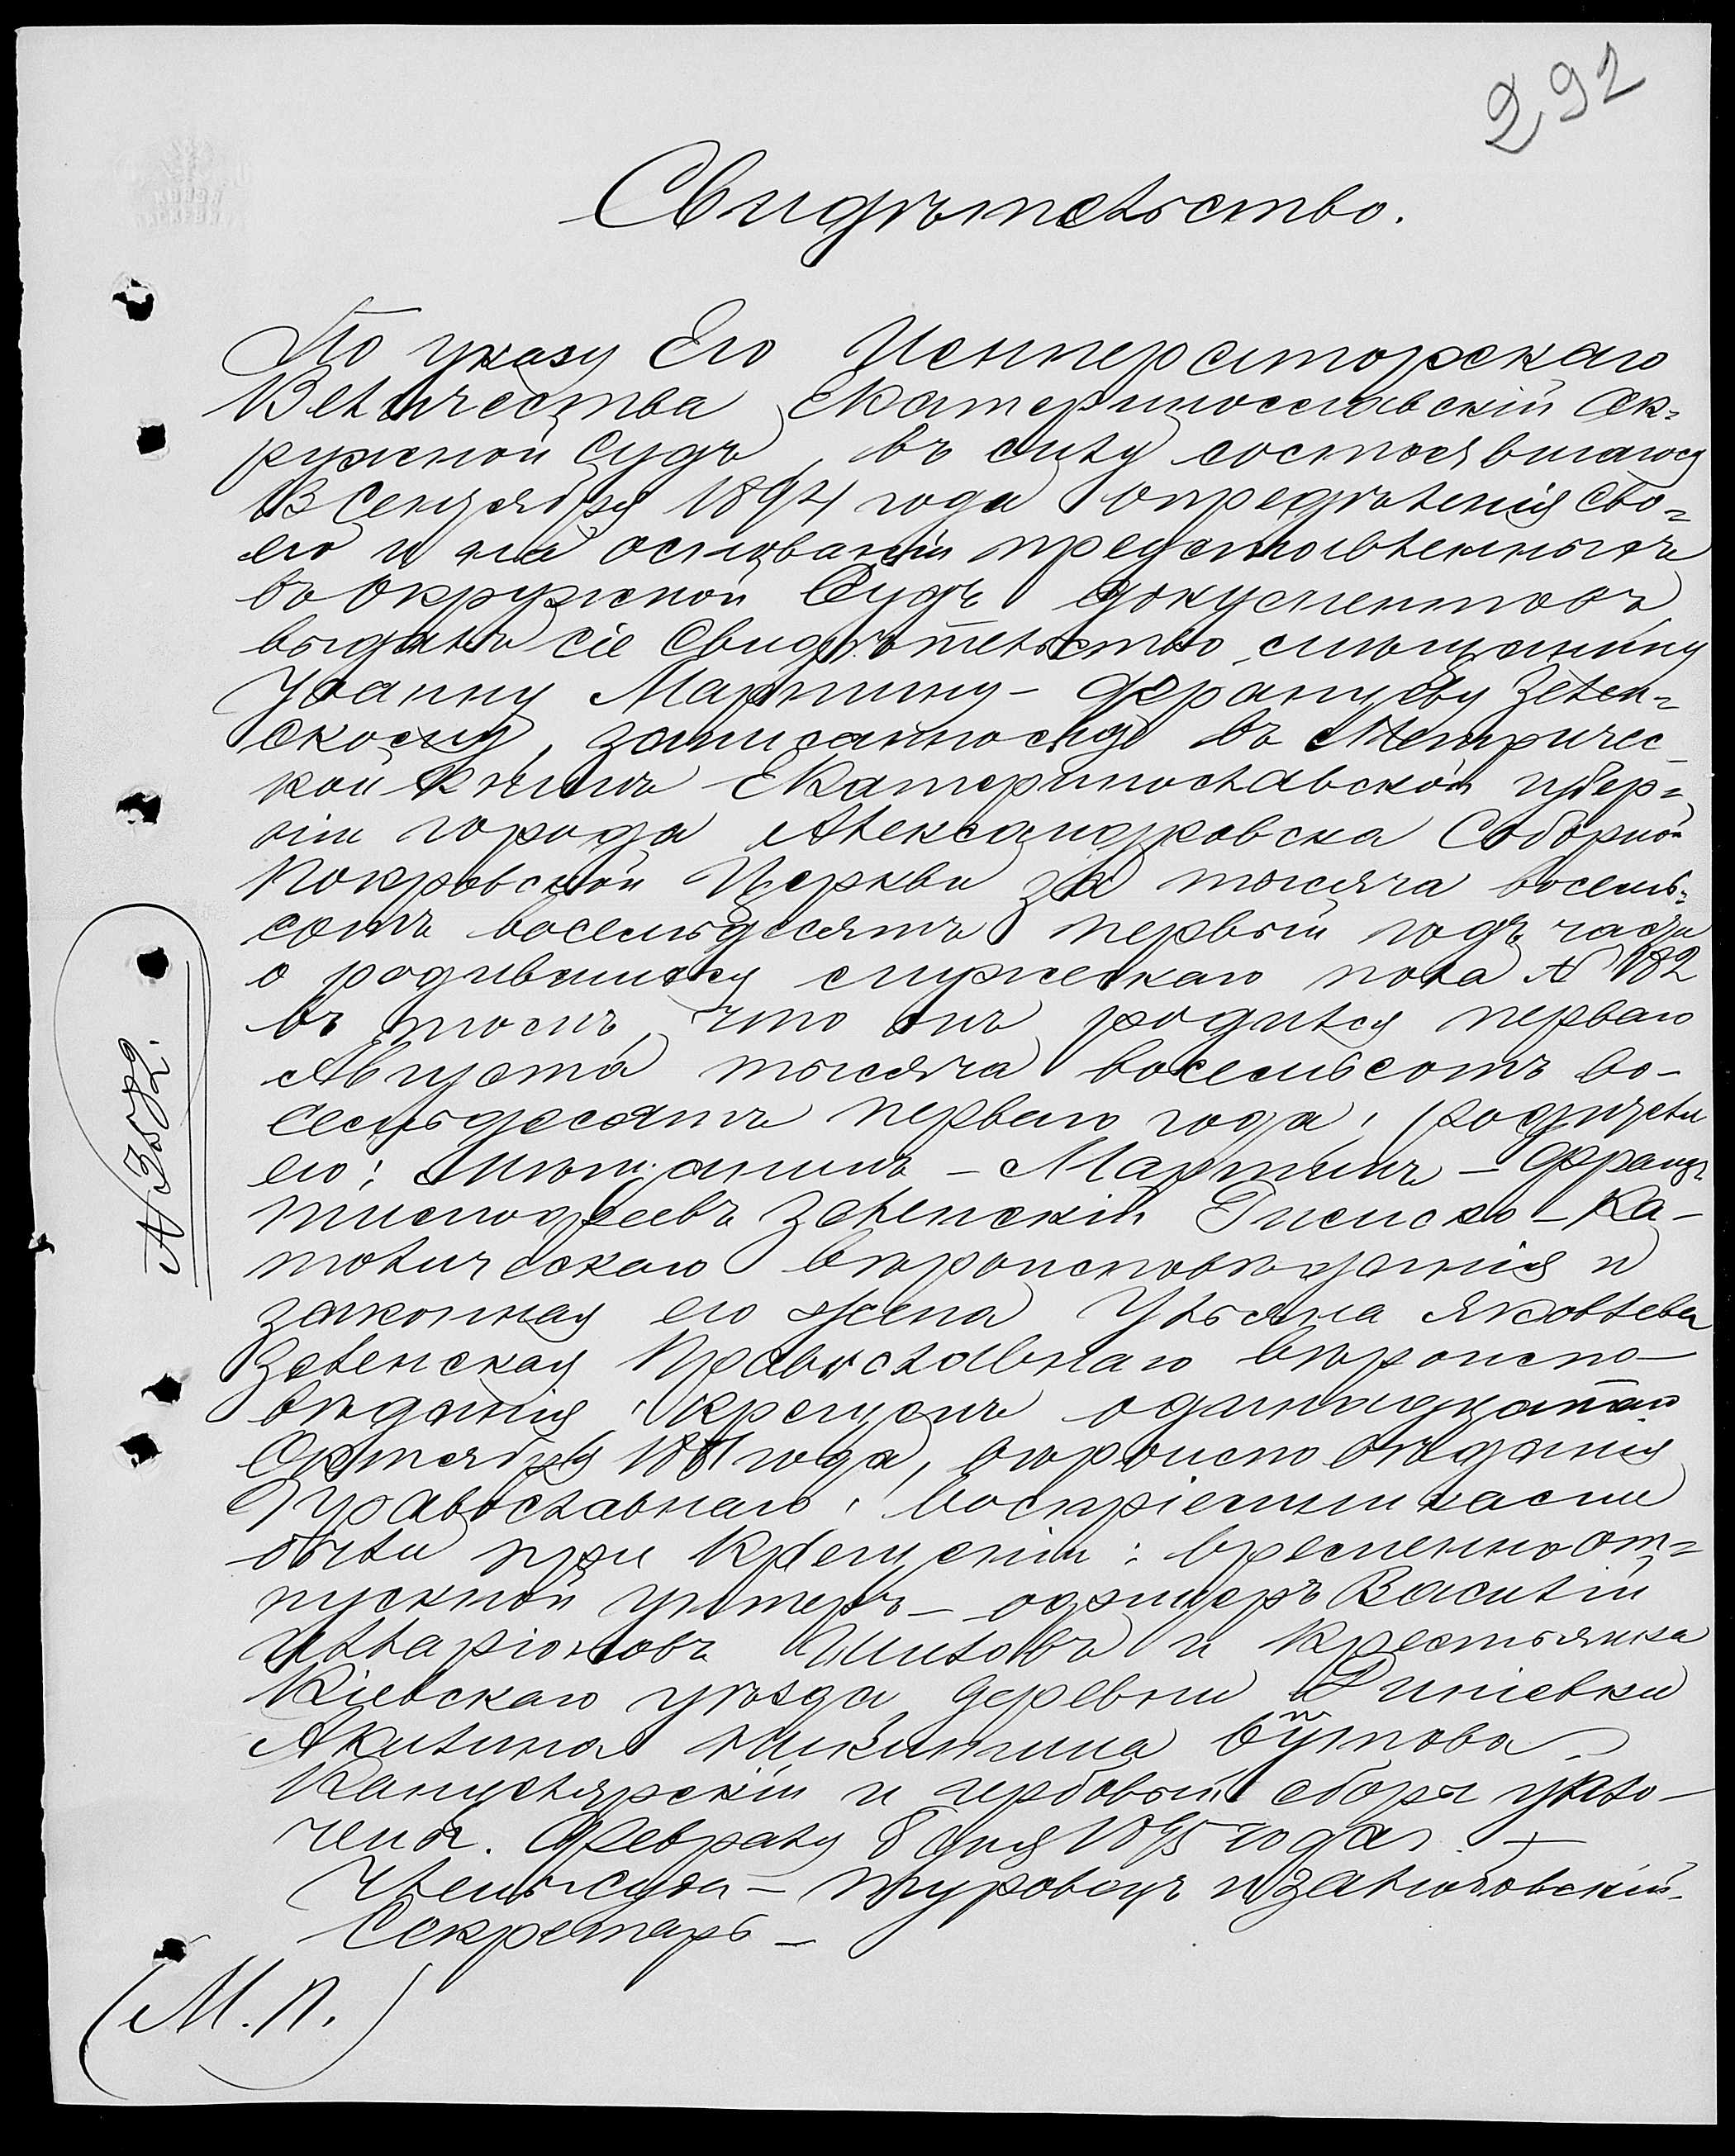 292
Свидѣтельство.
По указу Его Императорскаго
Величества Екатеринославскій Ок=
ружной Судъ, въ силу состоявшагося
13 Сентября 1894 года опредѣленія сво=
его и на основаніи представленныхъ
въ Окружной Судъ документовъ
выдалъ сіе Свидѣтельство мѣщанину
Іоанну Мартину - Францеву Зелен=
скому, записанному въ Метричес_
кой книгѣ Екатеринославской губер=
ніи города Александровска Соборной
Покровской Церкви за тысяча восемь=
сотъ восемьдесятъ первый годъ часть
о родившихся мужескаго пола № 182
въ томъ, что онъ родился перваго
Августа тысяча восемьсотъ во-
семьдесятъ перваго года, родители
его: мѣщанинъ - Мартинъ - Франц
Тимофеевъ Зеленскій Римско - Ка-
толическаго вѣроисповѣданія и
законная его жена Ульяна Яковлева
Зеленская Православнаго вѣроиспо-
вѣданія, крещенъ одиннадцатаго
Октября 1881 года, вѣроисповѣданія
Православнаго, воспріемниками
были при крещеніи: временно от=
пускной унтеръ - офицеръ Василій
Иларіоновъ Шиловъ и крестьянка
Кіевскаго уѣзда деревни
Акилина Никитина
Канцелярскій и гербовый сборы упло-
чены. Февраля 8 дня 1895 года.
Члены суда - Туровецъ и
Секретарь -
(М. П.)
№ 3582.